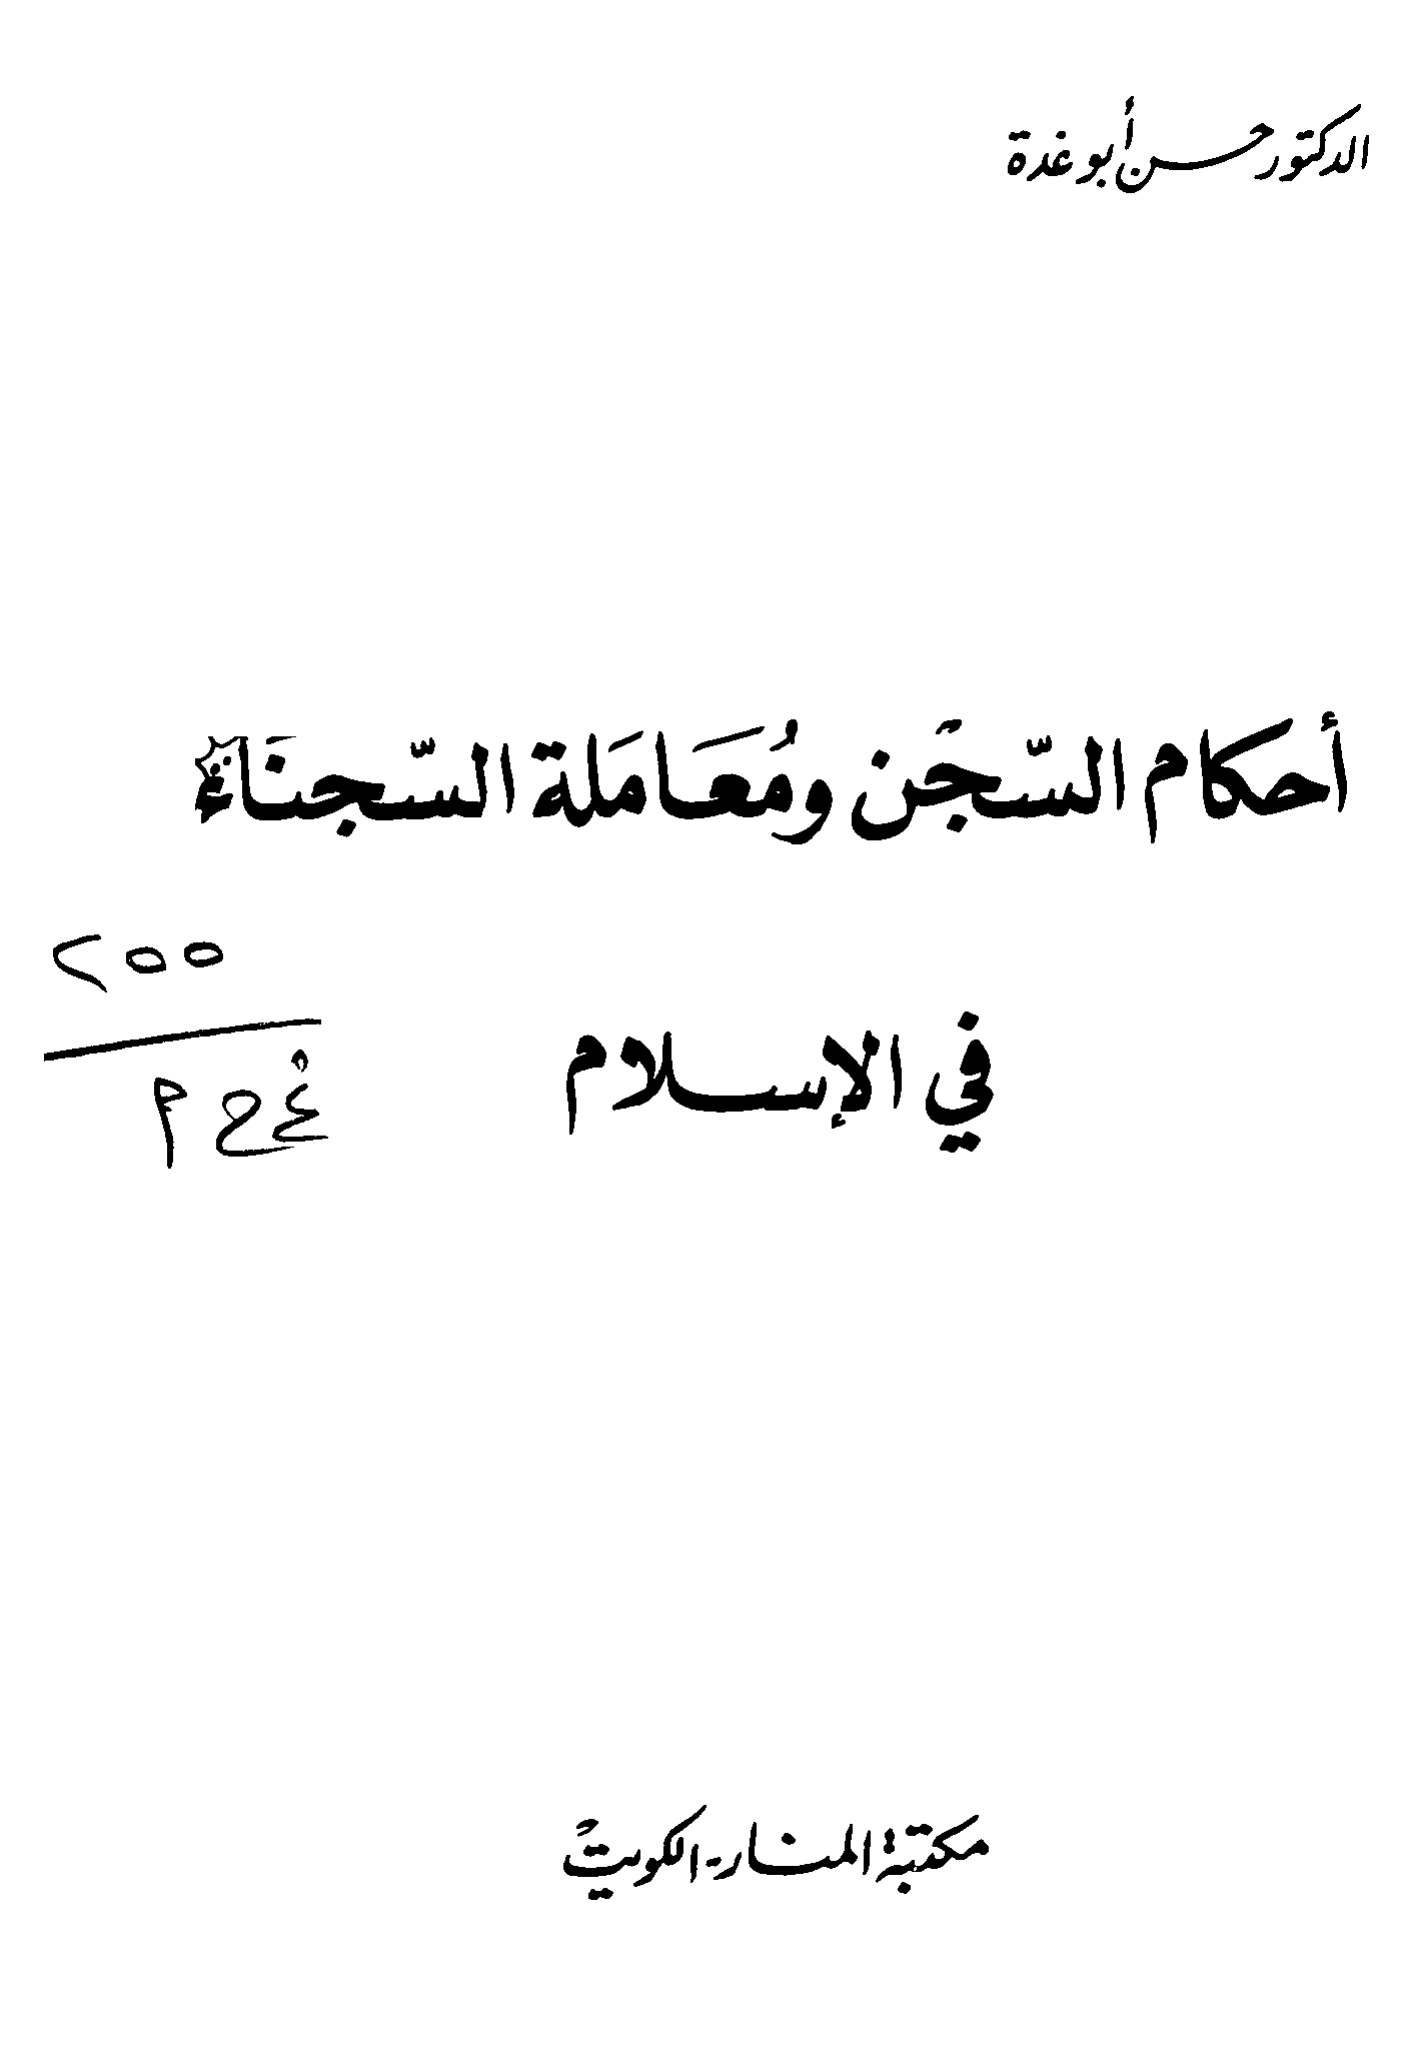 الدكتور حسن أبو غدة
أحكام السّجْن ومُعَامَلة السّجنَاء
في الإسلام
٢٥٥
غ ح م
مكتبة المنار - الكويت